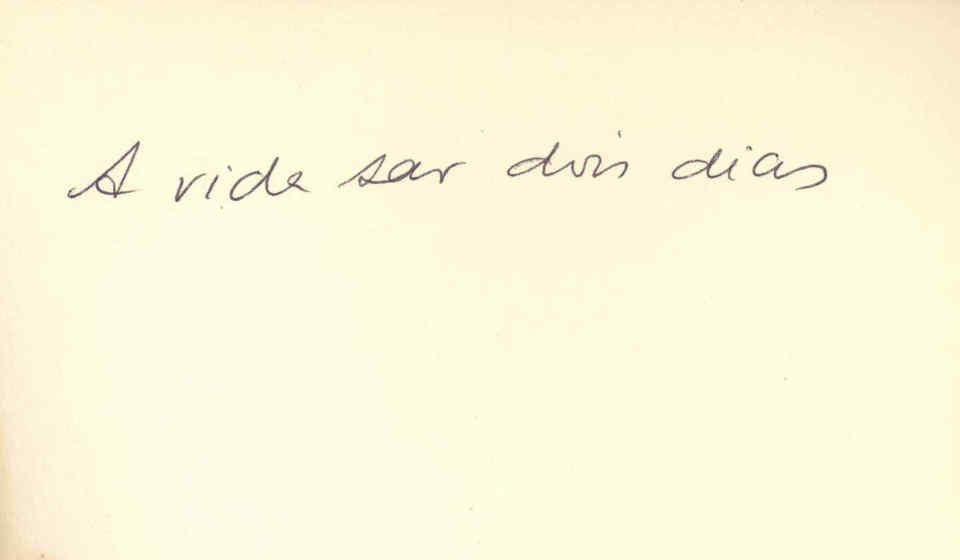 A vida são dois dias